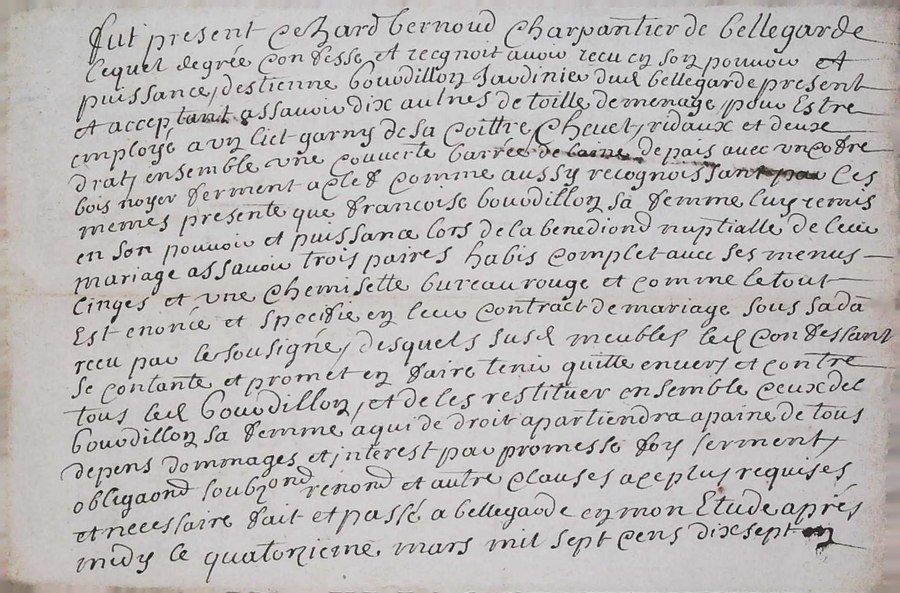 fut present Echard bernoud Charpantier de bellegarde
lequel degrée confesse et recgnoit avoir recu en son pouvoir et
puissance, destienne bourdillon Jardinier dud bellegarde present
et acceptant assavoir dix aulnes de toille demenage, pour Estre
employé a un lict garny de sa coittre, Chevet, ridaux et deux
drat, ensemble une couverte barrée de laine de pais avec un cofre
bois noyer ferment a clef comme aussy recognoissant par ces
memes presente que francoise bourdillon sa femme luy remis
en son pouvoir et puissance lors de la benediond nuptialle de leur
mariage assavoir trois paires habis complet avec ses menus
linges et une chemisette bureau rouge et comme le tout
Est enoncé et specifié en leur contract de mariage sous sa da
recu par le sousigné, desquels susd meubles led confessant
se contante et promet en faire tenir quitte envers et contre
tous led bourdillon, et de les restituer ensemble ceux de
bourdillon sa femme a qui de droit apartiendra a paine de tous
depens dommages et interest par promesse foy serment,
obligaond soubzond renond et autre clauses a ce plus requises
et necessaire fait et passé a bellegarde en mon Etude aprés
midy le quatorzieme mars mil sept cens dix sept